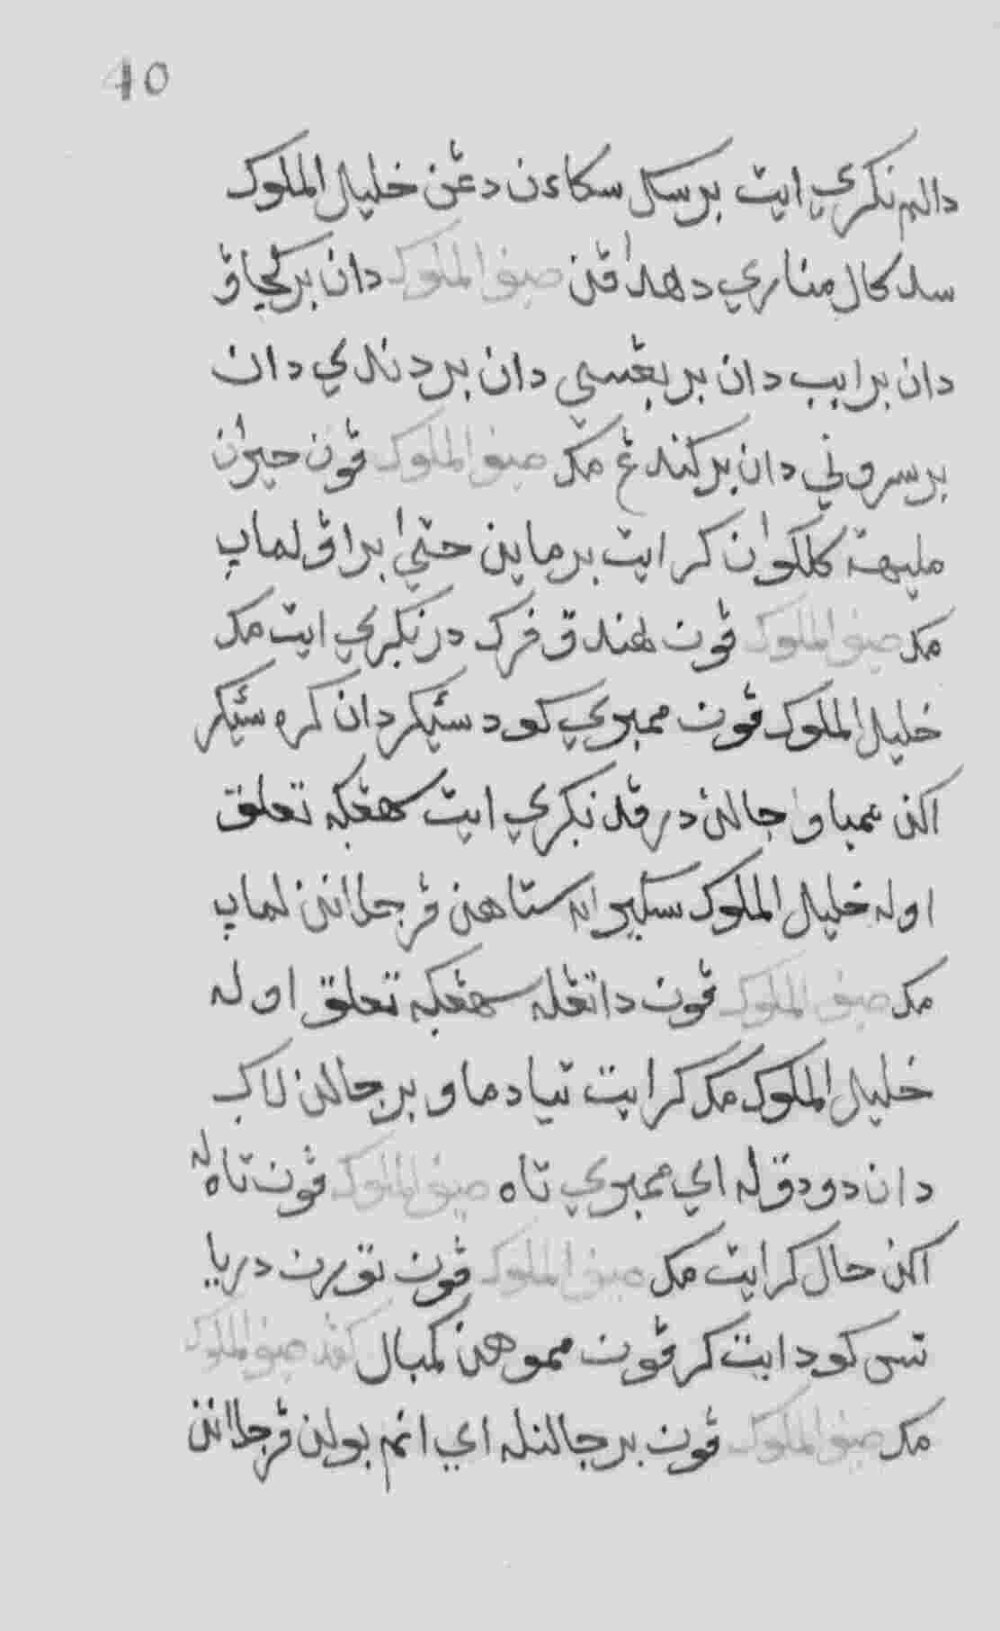 40
دالم نكري ايت برسكل سكاءن دڠن خليل الملوک
سدكال مناري دهداڤن صيف الملوک دان بركچاڤ
دان برابب دان بربڠسي دان بردندي دان
برسروني دان بركندڠ مک صيف الملوک ڤون حيران
مليهت كلكوان كرا ايت برماين حتي براڤ لماڽ
مک صيف الملوک ڤون هندق ڤرݢ در نكري ايت مک
خليل الملوک ڤون ممبري كود سئيكر دان كره سئيكر
اكن ممباوا جالن درڤد نكري ايت سهڠݢ تعلق
اوله خليل الملوک سكيرا ستاهن ڤرجلانن لماڽ
مک صيف الملوک ڤون داتڠله سهڠݢ تعلق اوله
خليل الملوک مک كرا ايت تياد ماو برجالن لاݢ
دان دودقله اي ممبري تاه صيف الملوک ڤون تاهله
اكن حال كرا ايت مک صيف الملوک ڤون تورن دريا
تس كود ايت كرا ڤون مموهن كمبال كڤد صيف الملوک
مک صيف الملوک ڤون برجالنله اي انم بولن ڤرجلانن